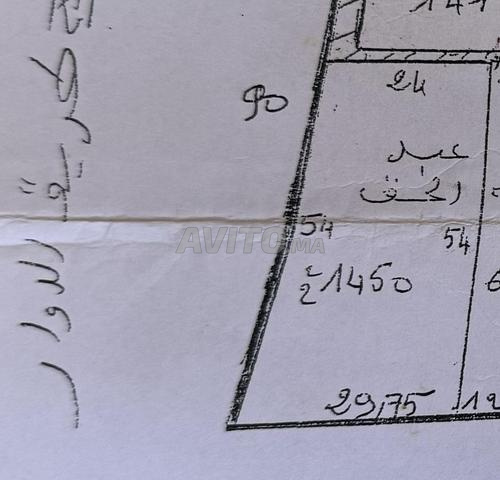 141
24
90
عبد
الحق
54
54
1450 م²
29,75
12
طريق الدوار
AVITO.MA